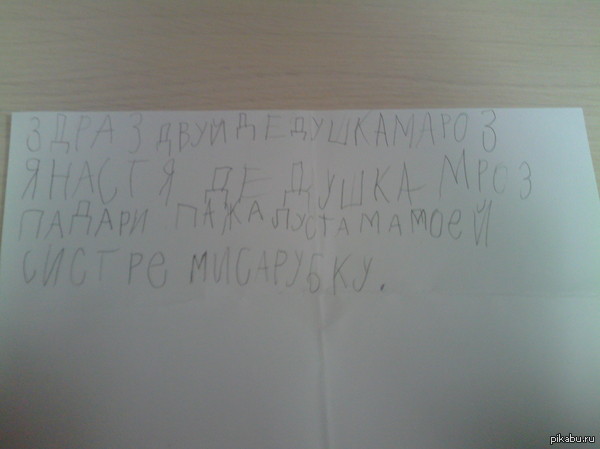 ЗДРАЗДВУЙ ДЕДУШКАМАРОЗ
ЯНАСТЯ ДЕДУШКА МРОЗ
ПАДАРИ ПАЖАЛУСТА МАМОЕЙ
СИСТРЕ МИСАРУБКУ.
pikabu.ru